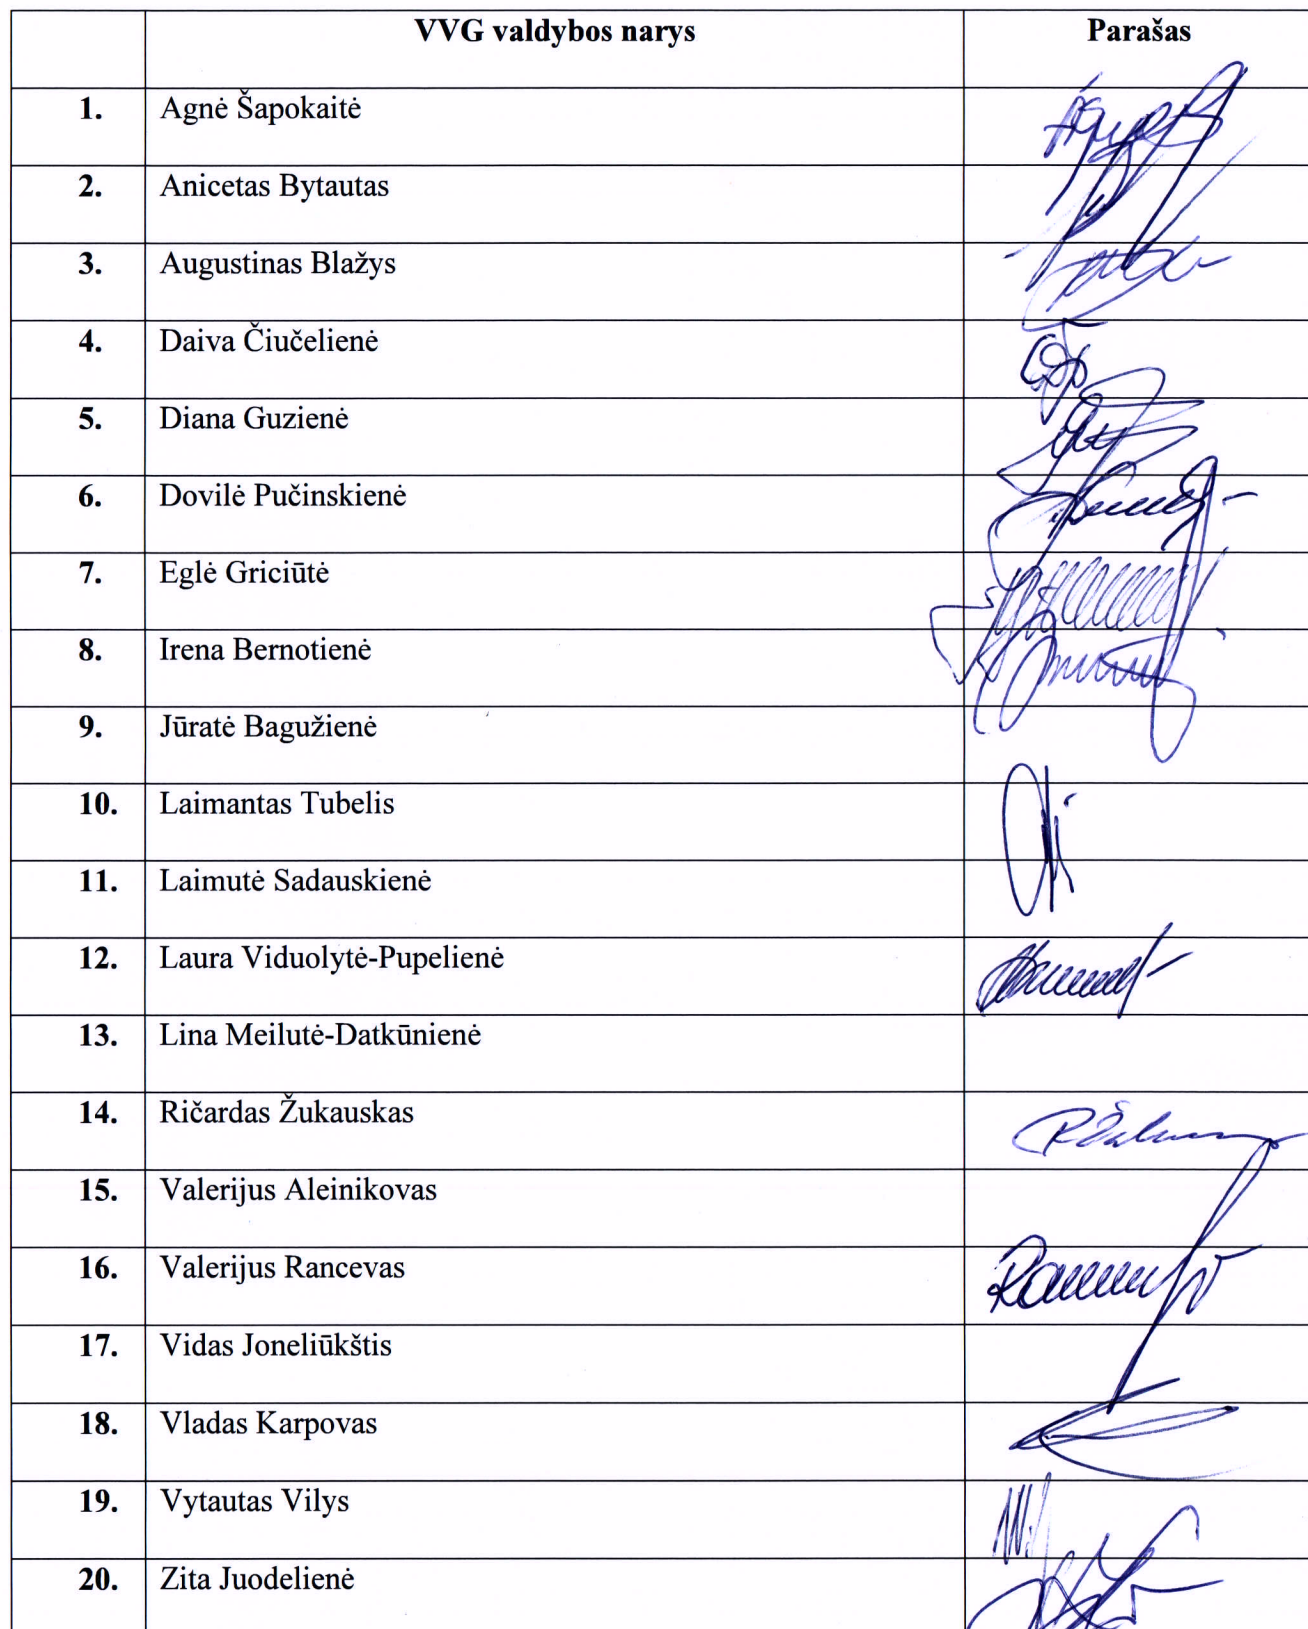 VVG valdybos narys Parašas
1. Agnė Šapokaitė
2. Anicetas Bytautas
3. Augustinas Blažys
4. Daiva Čiučelienė
5. Diana Guzienė
6. Dovilė Pučinskienė
7. Eglė Griciūtė
8. Irena Bernotienė
9. Jūratė Bagužienė
10. Laimantas Tubelis
11. Laimutė Sadauskienė
12. Laura Viduolytė-Pupelienė
13. Lina Meilutė-Datkūnienė
14. Ričardas Žukauskas
15. Valerijus Aleinikovas
16. Valerijus Rancevas
17. Vidas Joneliūkštis
18. Vladas Karpovas
19. Vytautas Vilys
20. Zita Juodelienė